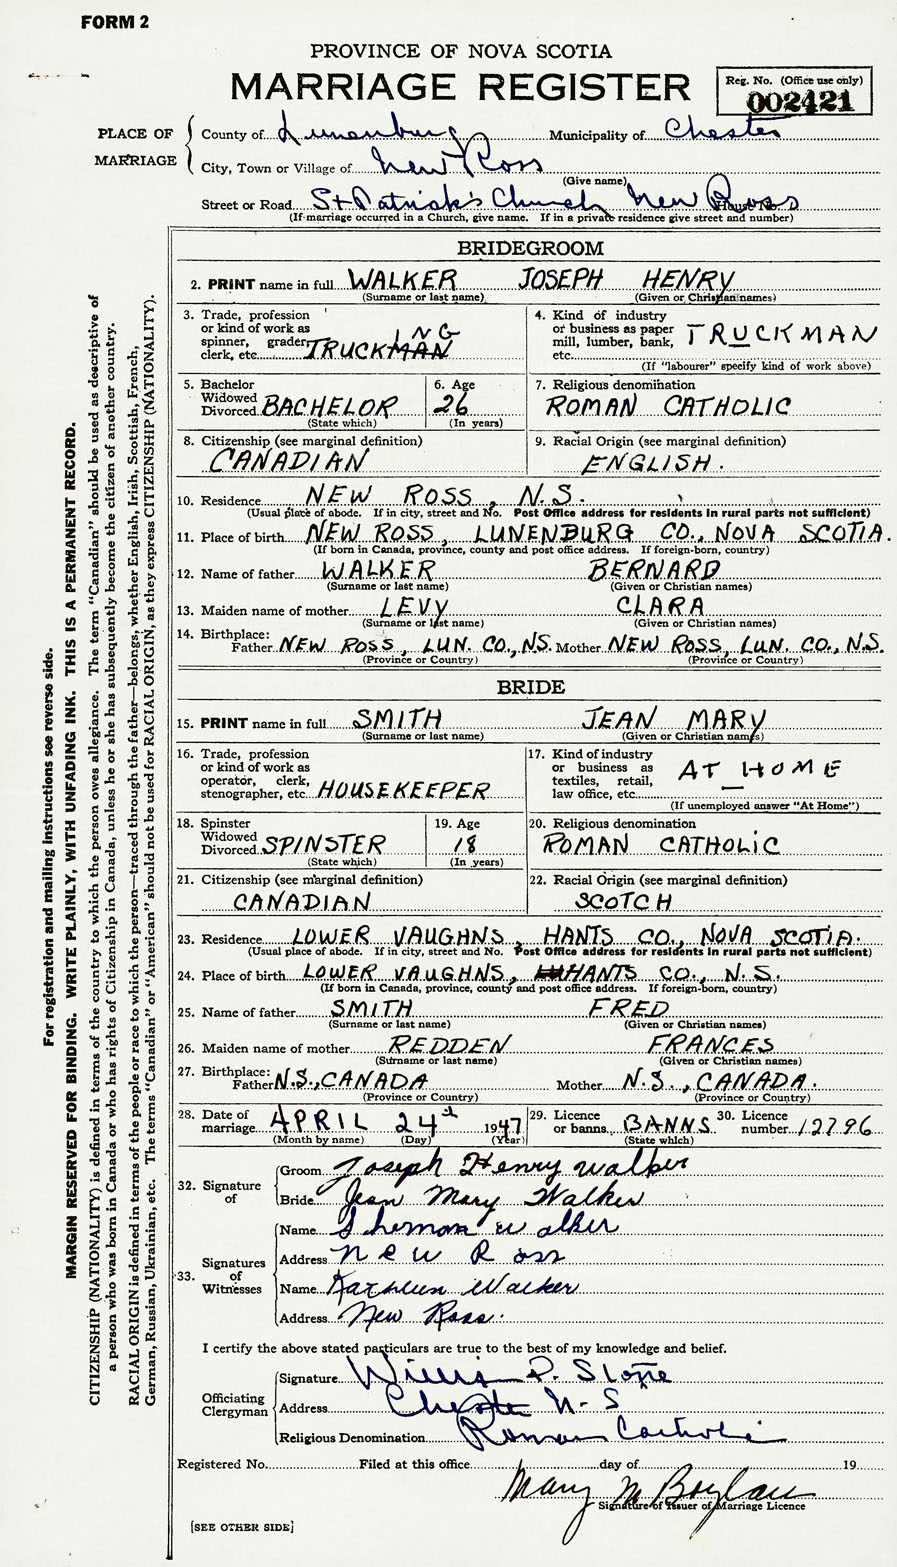 FORM 2
PROVINCE OF NOVA SCOTIA
MARRIAGE REGISTER
Reg. No. (Office use only)
002421
PLACE OF MARRIAGE
County of Lunenburg Municipality of Chester
City, Town or Village of New Ross
(Give name)
Street or Road St Patrick's Church New Ross House No.
(If marriage occurred in a Church, give name. If in a private residence give street and number)
BRIDEGROOM
2. PRINT name in full WALKER JOSEPH HENRY
(Surname or last name) (Given or Christian names)
3. Trade, profession
or kind of work as
spinner, grader,
clerk, etc. TRUCKMAN ING
4. Kind of industry
or business as paper
mill, lumber, bank,
etc. TRUCKMAN
(If "labourer" specify kind of work above)
5. Bachelor
Widowed
Divorced BACHELOR
(State which)
6. Age
26
(In years)
7. Religious denomination
ROMAN CATHOLIC
8. Citizenship (see marginal definition)
CANADIAN
9. Racial Origin (see marginal definition)
ENGLISH.
10. Residence NEW ROSS, N.S.
(Usual place of abode. If in city, street and No. Post Office address for residents in rural parts not sufficient)
11. Place of birth NEW ROSS, LUNENBURG CO., NOVA SCOTIA.
(If born in Canada, province, county and post office address. If foreign-born, country)
12. Name of father WALKER BERNARD
(Surname or last name) (Given or Christian names)
13. Maiden name of mother LEVY CLARA
(Surname or last name) (Given or Christian names)
14. Birthplace:
Father NEW ROSS, LUN. CO., N.S. Mother NEW ROSS, LUN. CO., N.S.
(Province or Country) (Province or Country)
BRIDE
15. PRINT name in full SMITH JEAN MARY
(Surname or last name) (Given or Christian names)
16. Trade, profession
or kind of work as
operator, clerk,
stenographer, etc. HOUSEKEEPER
17. Kind of industry
or business as
textiles, retail,
law office, etc. AT HOME
(If unemployed answer "At Home")
18. Spinster
Widowed
Divorced SPINSTER
(State which)
19. Age
18
(In years)
20. Religious denomination
ROMAN CATHOLIC
21. Citizenship (see marginal definition)
CANADIAN
22. Racial Origin (see marginal definition)
SCOTCH
23. Residence LOWER VAUGHNS, HANTS CO., NOVA SCOTIA.
(Usual place of abode. If in city, street and No. Post Office address for residents in rural parts not sufficient)
24. Place of birth LOWER VAUGHNS, HANTS CO., N.S.
(If born in Canada, province, county and post office address. If foreign-born, country)
25. Name of father SMITH FRED
(Surname or last name) (Given or Christian names)
26. Maiden name of mother REDDEN FRANCES
(Surname or last name) (Given or Christian names)
27. Birthplace:
Father N.S., CANADA Mother N.S., CANADA.
(Province or Country) (Province or Country)
28. Date of
marriage APRIL 24th 1947
(Month by name) (Day) (Year)
29. Licence
or banns BANNS
(State which)
30. Licence
number 12796
32. Signature of
Groom Joseph Henry Walker
Bride Jean Mary Walker
33. Signatures of Witnesses
Name Shermon Walker
Address New Ross
Name Kathleen Walker
Address New Ross.
I certify the above stated particulars are true to the best of my knowledge and belief.
Officiating Clergyman
Signature
Address Chester N-S
Religious Denomination Roman Catholic
Registered No. Filed at this office day of 19
Mary M Boylan
Signature of Issuer of Marriage Licence
[SEE OTHER SIDE]
For registration and mailing instructions see reverse side.
MARGIN RESERVED FOR BINDING. WRITE PLAINLY, WITH UNFADING INK. THIS IS A PERMANENT RECORD.
CITIZENSHIP (NATIONALITY) is defined in terms of the country to which the person owes allegiance. The term "Canadian" should be used as descriptive of
a person who was born in Canada or who has rights of Citizenship in Canada, unless he or she has subsequently become the citizen of another country.
RACIAL ORIGIN is defined in terms of the people or race to which the person—traced through the father—belongs, whether English, Irish, Scottish, French,
German, Russian, Ukrainian, etc. The terms "Canadian" or "American" should not be used for RACIAL ORIGIN, as they express CITIZENSHIP (NATIONALITY).